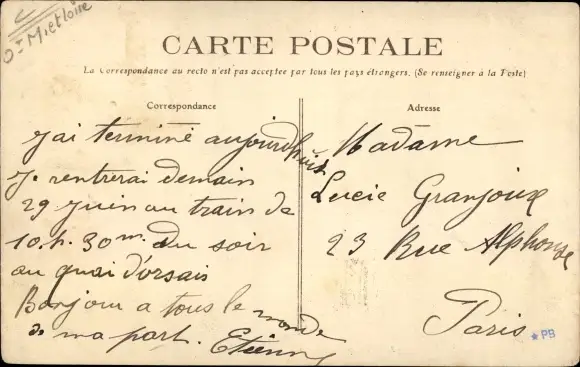 Dt M et Loire
CARTE POSTALE
La Correspondance au recto n'est pas acceptée par tous les pays étrangers. (Se renseigner à la Poste)
Correspondance
J'ai terminé aujourd'huit
Je rentrerai demain
29 Juin au train de
10.h. 30m. du soir
au quai d'orsais
Bonjour a tous le monde
de ma part. Etienne
Adresse
Madame
Lucie Granjoux
23 Rue Alphonse
Paris
PB